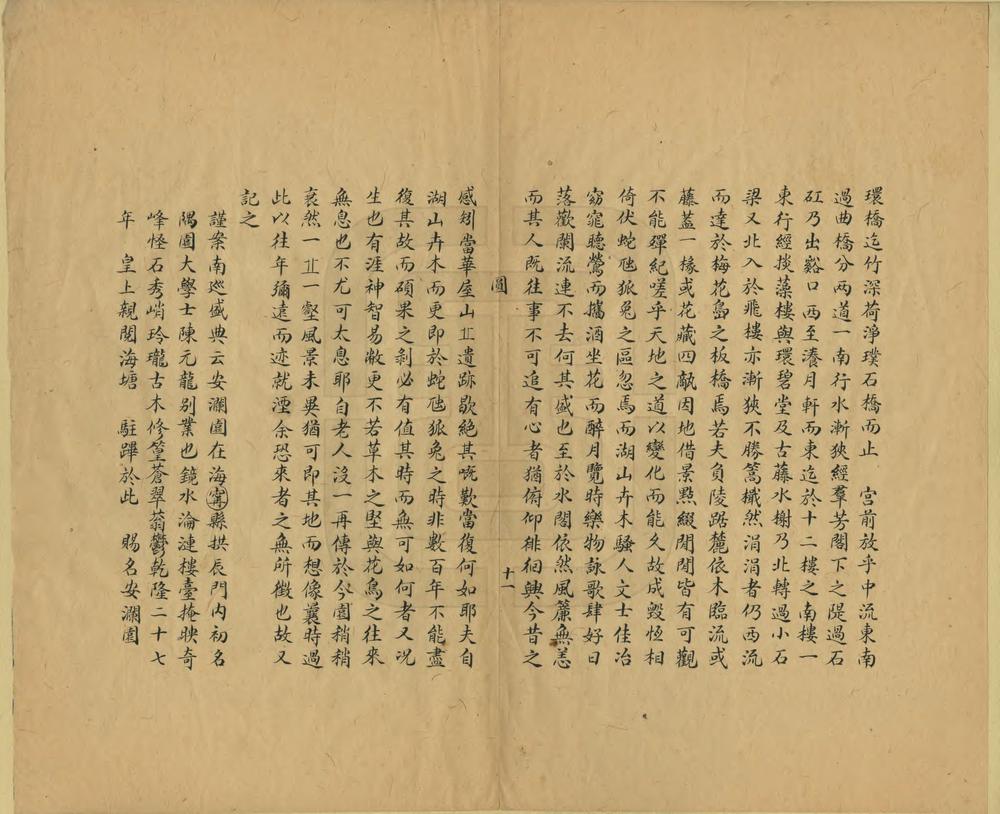 環橋迄竹深荷淨璞石橋而止　宫前放乎中流東南
過曲橋分兩道一南行水漸狹經羣芳閣下之隄過石
矼乃出谿口西至漾月軒而東迄於十二樓之南樓一
東行經掞藻樓與環碧堂及古藤水榭乃北轉過小石
梁又北入於飛樓亦漸狹不勝篙檥然涓涓者仍西流
而達於梅花島之板橋焉若夫負陵踞麓依木臨流或
藤蓋一椽或花藏四敵因地借景㸃綴閒閒皆有可觀
不能殫紀嗟乎天地之道以變化而能久故成毀恆相
倚伏蛇虺狐兔之區忽焉而湖山卉木騷人文士佳冶
窈窕聽鶯而攜酒坐花而醉月覽時樂物詠歌肆好日
落歡闌流連不去何其盛也至於水閣依然風簾無恙
而其人既往事不可追有心者猶俯仰徘徊興今昔之
園
十一
感矧當華屋山丠遺跡歇絕其嘅歎當復何如耶夫自
湖山卉木而更即於蛇虺狐兔之時非數百年不能盡
復其故而碩果之剝必有值其時而無可如何者又况
生也有涯神智易敝更不若草木之堅與花鳥之往來
無息也不尤可太息耶自老人沒一再傳於今園稍稍
衰然一丠一壑風景未異猶可即其地而想像曩時過
此以往年彌遠而迹就湮余恐來者之無所徵也故又
記之
謹案南巡盛典云安瀾園在海寗縣拱辰門内初名
隅園大學士陳元龍别業也鏡水淪漣樓臺掩映奇
峰怪石秀峭玲瓏古木修篁蒼翠蓊鬱乾隆二十七
年　皇上親閱海塘　駐蹕於此　賜名安瀾園